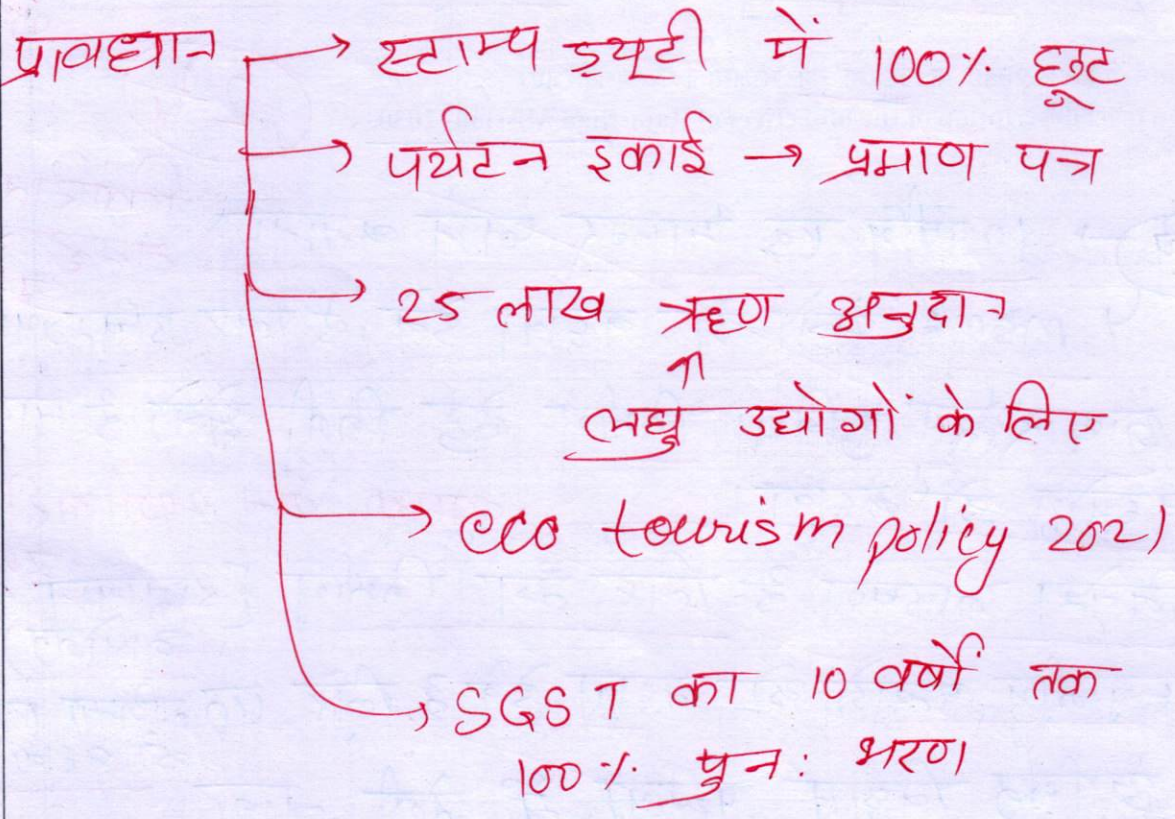 प्रावधान → स्टाम्प ड्यूटी में 100% छूट
→ पर्यटन इकाई → प्रमाण पत्र
→ 25 लाख ऋण अनुदान
↑
लघु उद्योगों के लिए
→ eco tourism policy 2021
→ SGST का 10 वर्षों तक
100% पुनः भरण